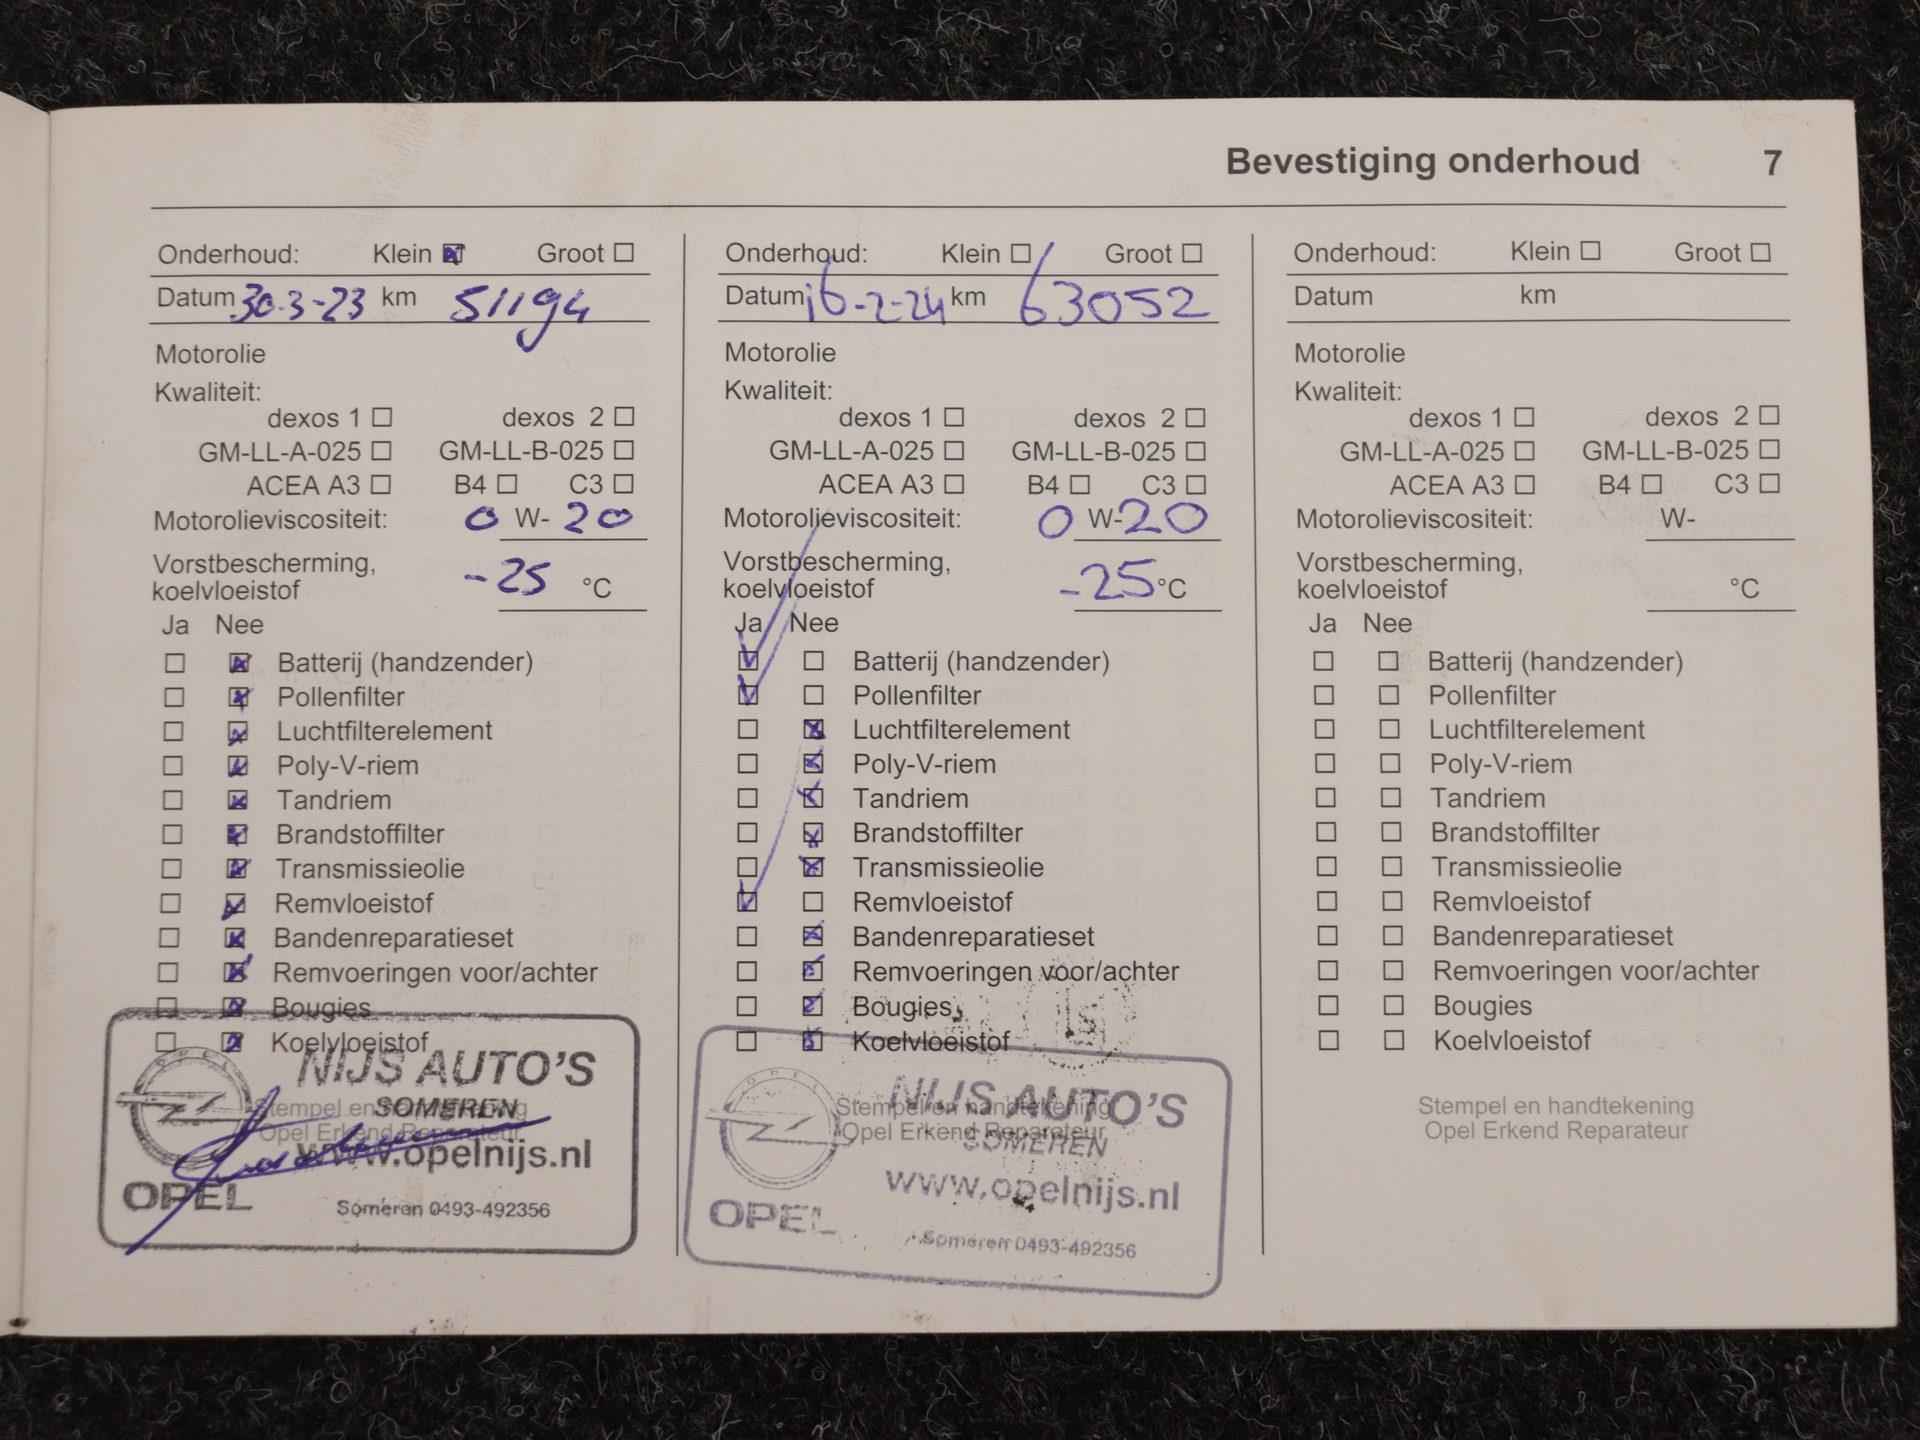 Bevestiging onderhoud 7
Onderhoud: Klein ☒ Groot ☐
Datum 30-3-23 km 51194
Motorolie
Kwaliteit:
dexos 1 ☐ dexos 2 ☐
GM-LL-A-025 ☐ GM-LL-B-025 ☐
ACEA A3 ☐ B4 ☐ C3 ☐
Motorolieviscositeit: 0 W- 20
Vorstbescherming,
koelvloeistof -25 °C
Ja Nee
☐ ☒ Batterij (handzender)
☐ ☒ Pollenfilter
☐ ☒ Luchtfilterelement
☐ ☒ Poly-V-riem
☐ ☒ Tandriem
☐ ☒ Brandstoffilter
☐ ☒ Transmissieolie
☐ ☒ Remvloeistof
☐ ☒ Bandenreparatieset
☐ ☒ Remvoeringen voor/achter
☐ ☒ Bougies
☐ ☒ Koelvloeistof
Stempel en handtekening
Opel Erkend Reparateur
OPEL
NIJS AUTO'S
SOMEREN
www.opelnijs.nl
OPEL
Someren 0493-492356
Onderhoud: Klein ☐ Groot ☐
Datum 16-2-24 km 63052
Motorolie
Kwaliteit:
dexos 1 ☐ dexos 2 ☐
GM-LL-A-025 ☐ GM-LL-B-025 ☐
ACEA A3 ☐ B4 ☐ C3 ☐
Motorolieviscositeit: 0 W- 20
Vorstbescherming,
koelvloeistof -25 °C
Ja Nee
☑ ☐ Batterij (handzender)
☑ ☐ Pollenfilter
☐ ☒ Luchtfilterelement
☐ ☒ Poly-V-riem
☐ ☒ Tandriem
☐ ☒ Brandstoffilter
☐ ☒ Transmissieolie
☑ ☐ Remvloeistof
☐ ☒ Bandenreparatieset
☐ ☒ Remvoeringen voor/achter
☐ ☒ Bougies
☐ ☒ Koelvloeistof
Stempel en handtekening
Opel Erkend Reparateur
OPEL
NIJS AUTO'S
SOMEREN
www.opelnijs.nl
OPEL
Someren 0493-492356
Onderhoud: Klein ☐ Groot ☐
Datum km
Motorolie
Kwaliteit:
dexos 1 ☐ dexos 2 ☐
GM-LL-A-025 ☐ GM-LL-B-025 ☐
ACEA A3 ☐ B4 ☐ C3 ☐
Motorolieviscositeit: W-
Vorstbescherming,
koelvloeistof °C
Ja Nee
☐ ☐ Batterij (handzender)
☐ ☐ Pollenfilter
☐ ☐ Luchtfilterelement
☐ ☐ Poly-V-riem
☐ ☐ Tandriem
☐ ☐ Brandstoffilter
☐ ☐ Transmissieolie
☐ ☐ Remvloeistof
☐ ☐ Bandenreparatieset
☐ ☐ Remvoeringen voor/achter
☐ ☐ Bougies
☐ ☐ Koelvloeistof
Stempel en handtekening
Opel Erkend Reparateur